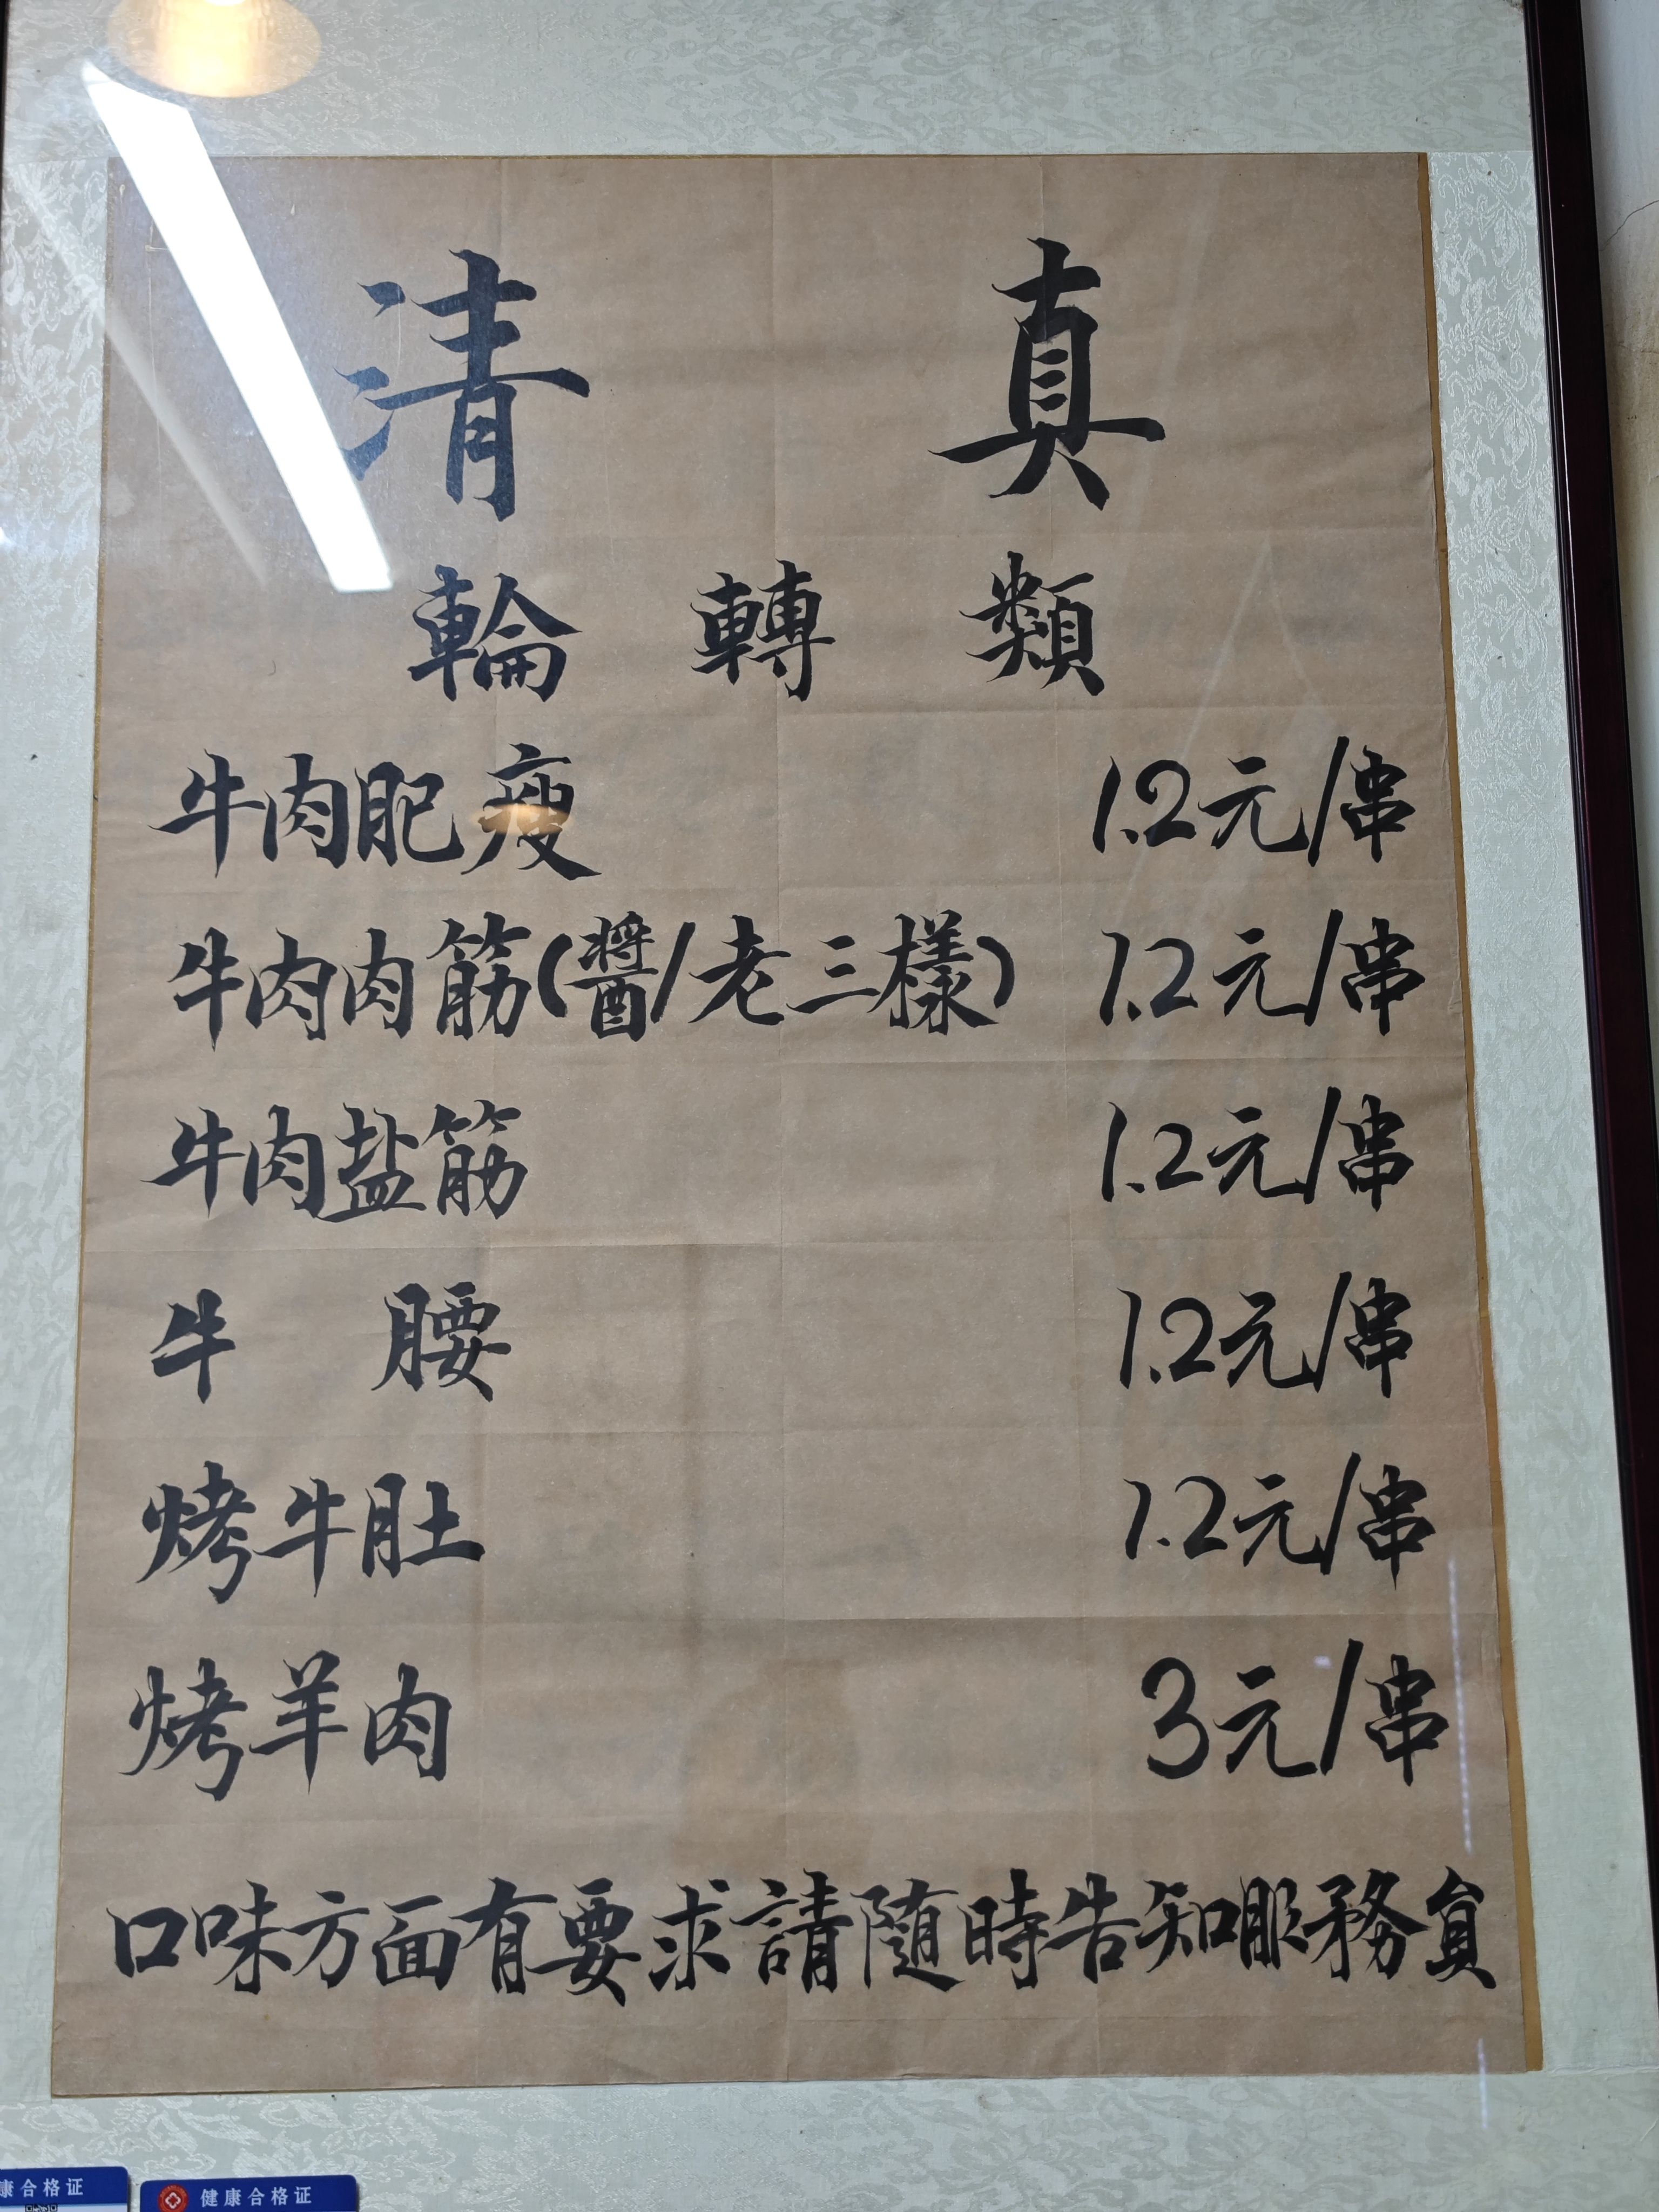 清 真
輪 轉 類
牛肉肥瘦 1.2元/串
牛肉肉筋(醬/老三樣) 1.2元/串
牛肉盐筋 1.2元/串
牛 腰 1.2元/串
烤牛肚 1.2元/串
烤羊肉 3元/串
口味方面有要求請隨時告知服務員
康合格证
健康合格证